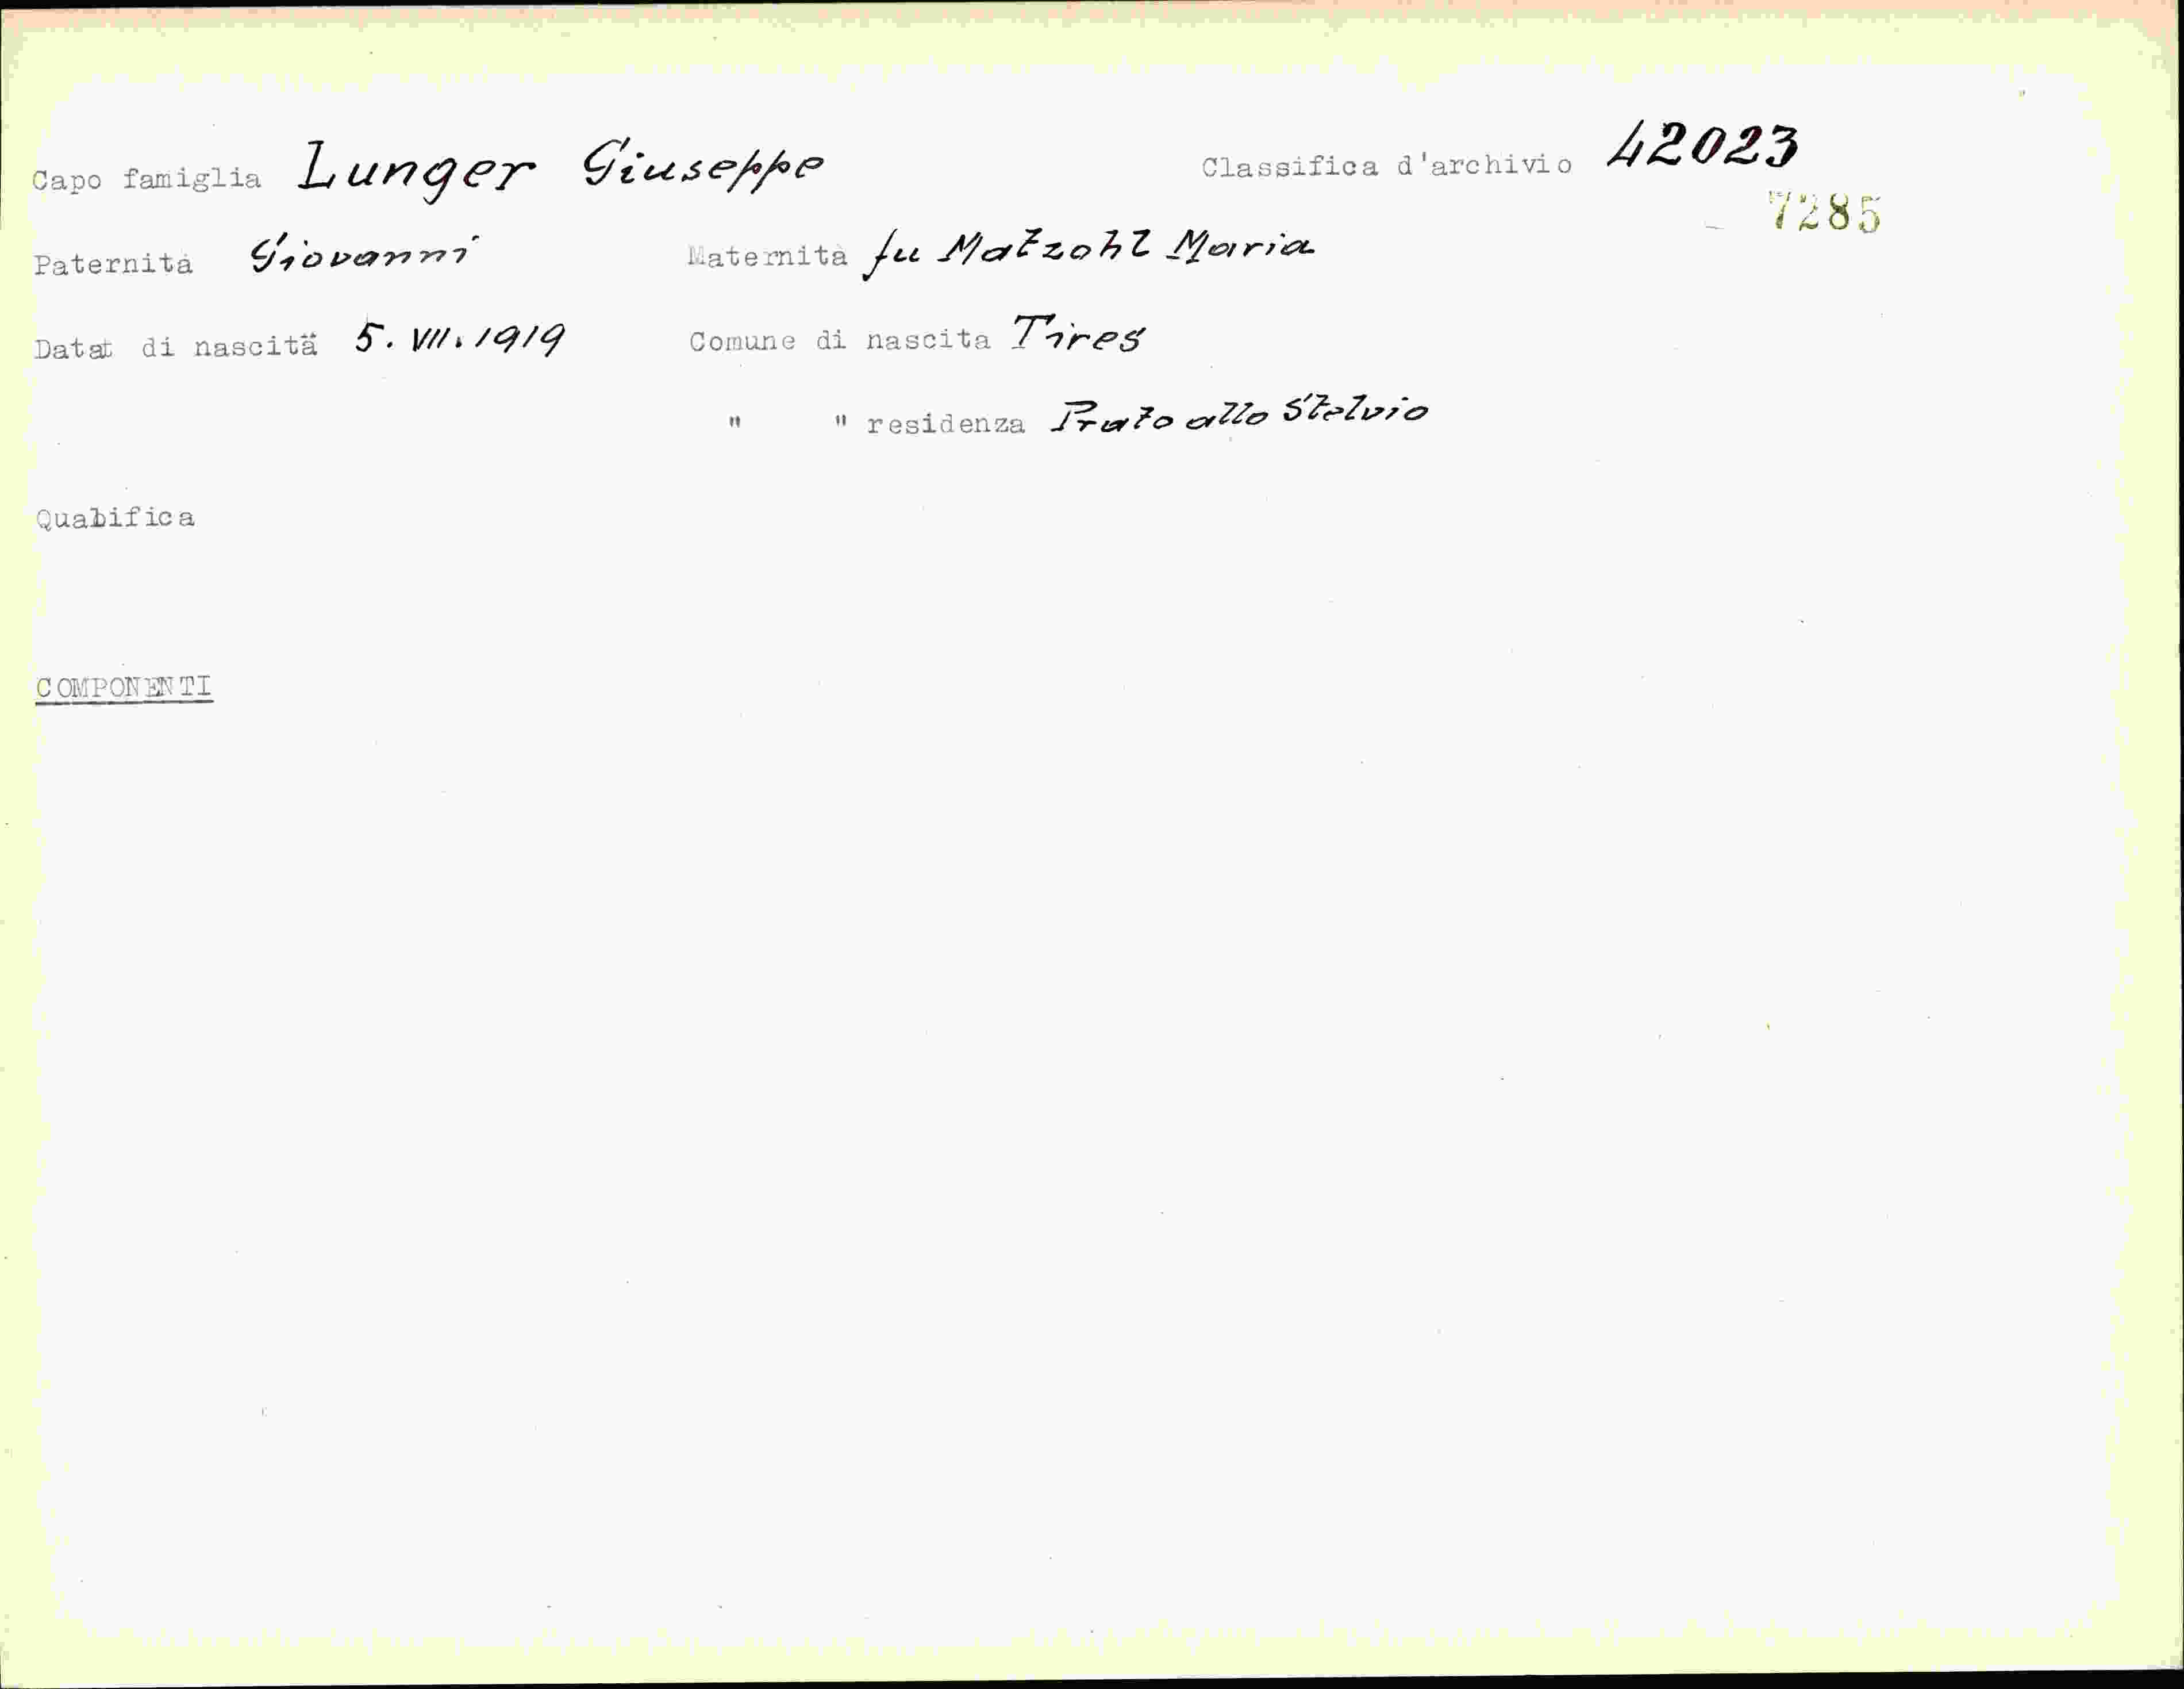 Capo famiglia Lunger Giuseppe Classifica d'archivio 42023
7285
Paternità Giovanni Maternità fu Matzohl Maria
Datat di nascità 5. VII. 1919 Comune di nascita Tires
" " residenza Prato allo Stelvio
Qualifica
COMPONENTI